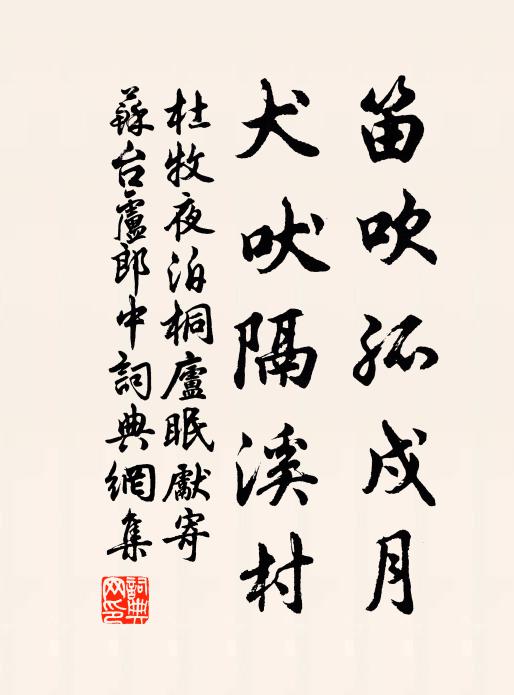 笛吹孤戍月
犬吠隔溪村
杜牧夜泊桐廬眠獻寄
蘇台盧郎中詞典網集
詞典網印